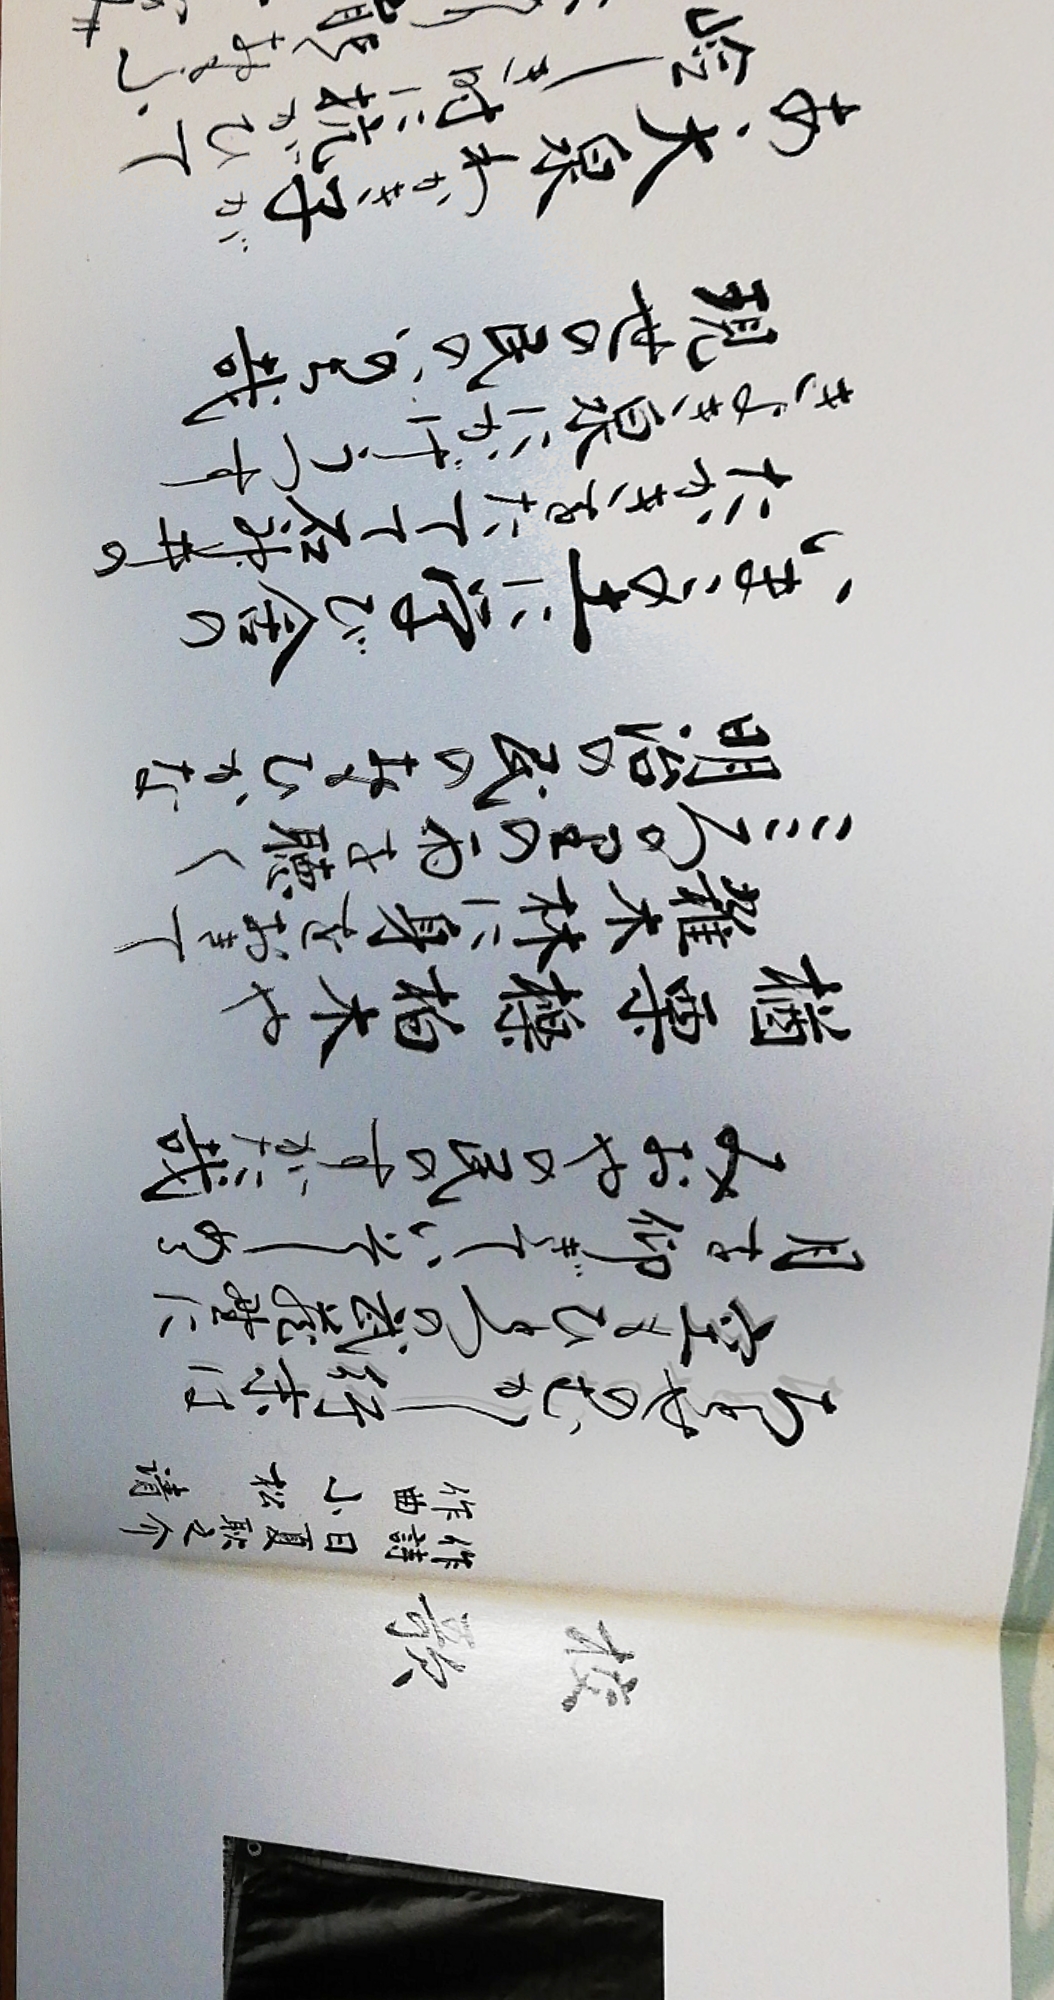 校歌
作詩 日夏耿之介
作曲 小松 清
ちとせのむかし行末は
空もひとつの武蔵野に
月を仰ぎていそしめる
みおやの民のすがた哉
楢栗櫟柏木や
雑木林に身をおきて
こころの里の雨を聴く
明治の民のおもひかな
いまこの土に学び舎の
たかきをたてて石神井の
きよき泉にかげうつす
現世の民のいのち哉
あゝ大泉わかき子が
嶮しき時に抗がひて